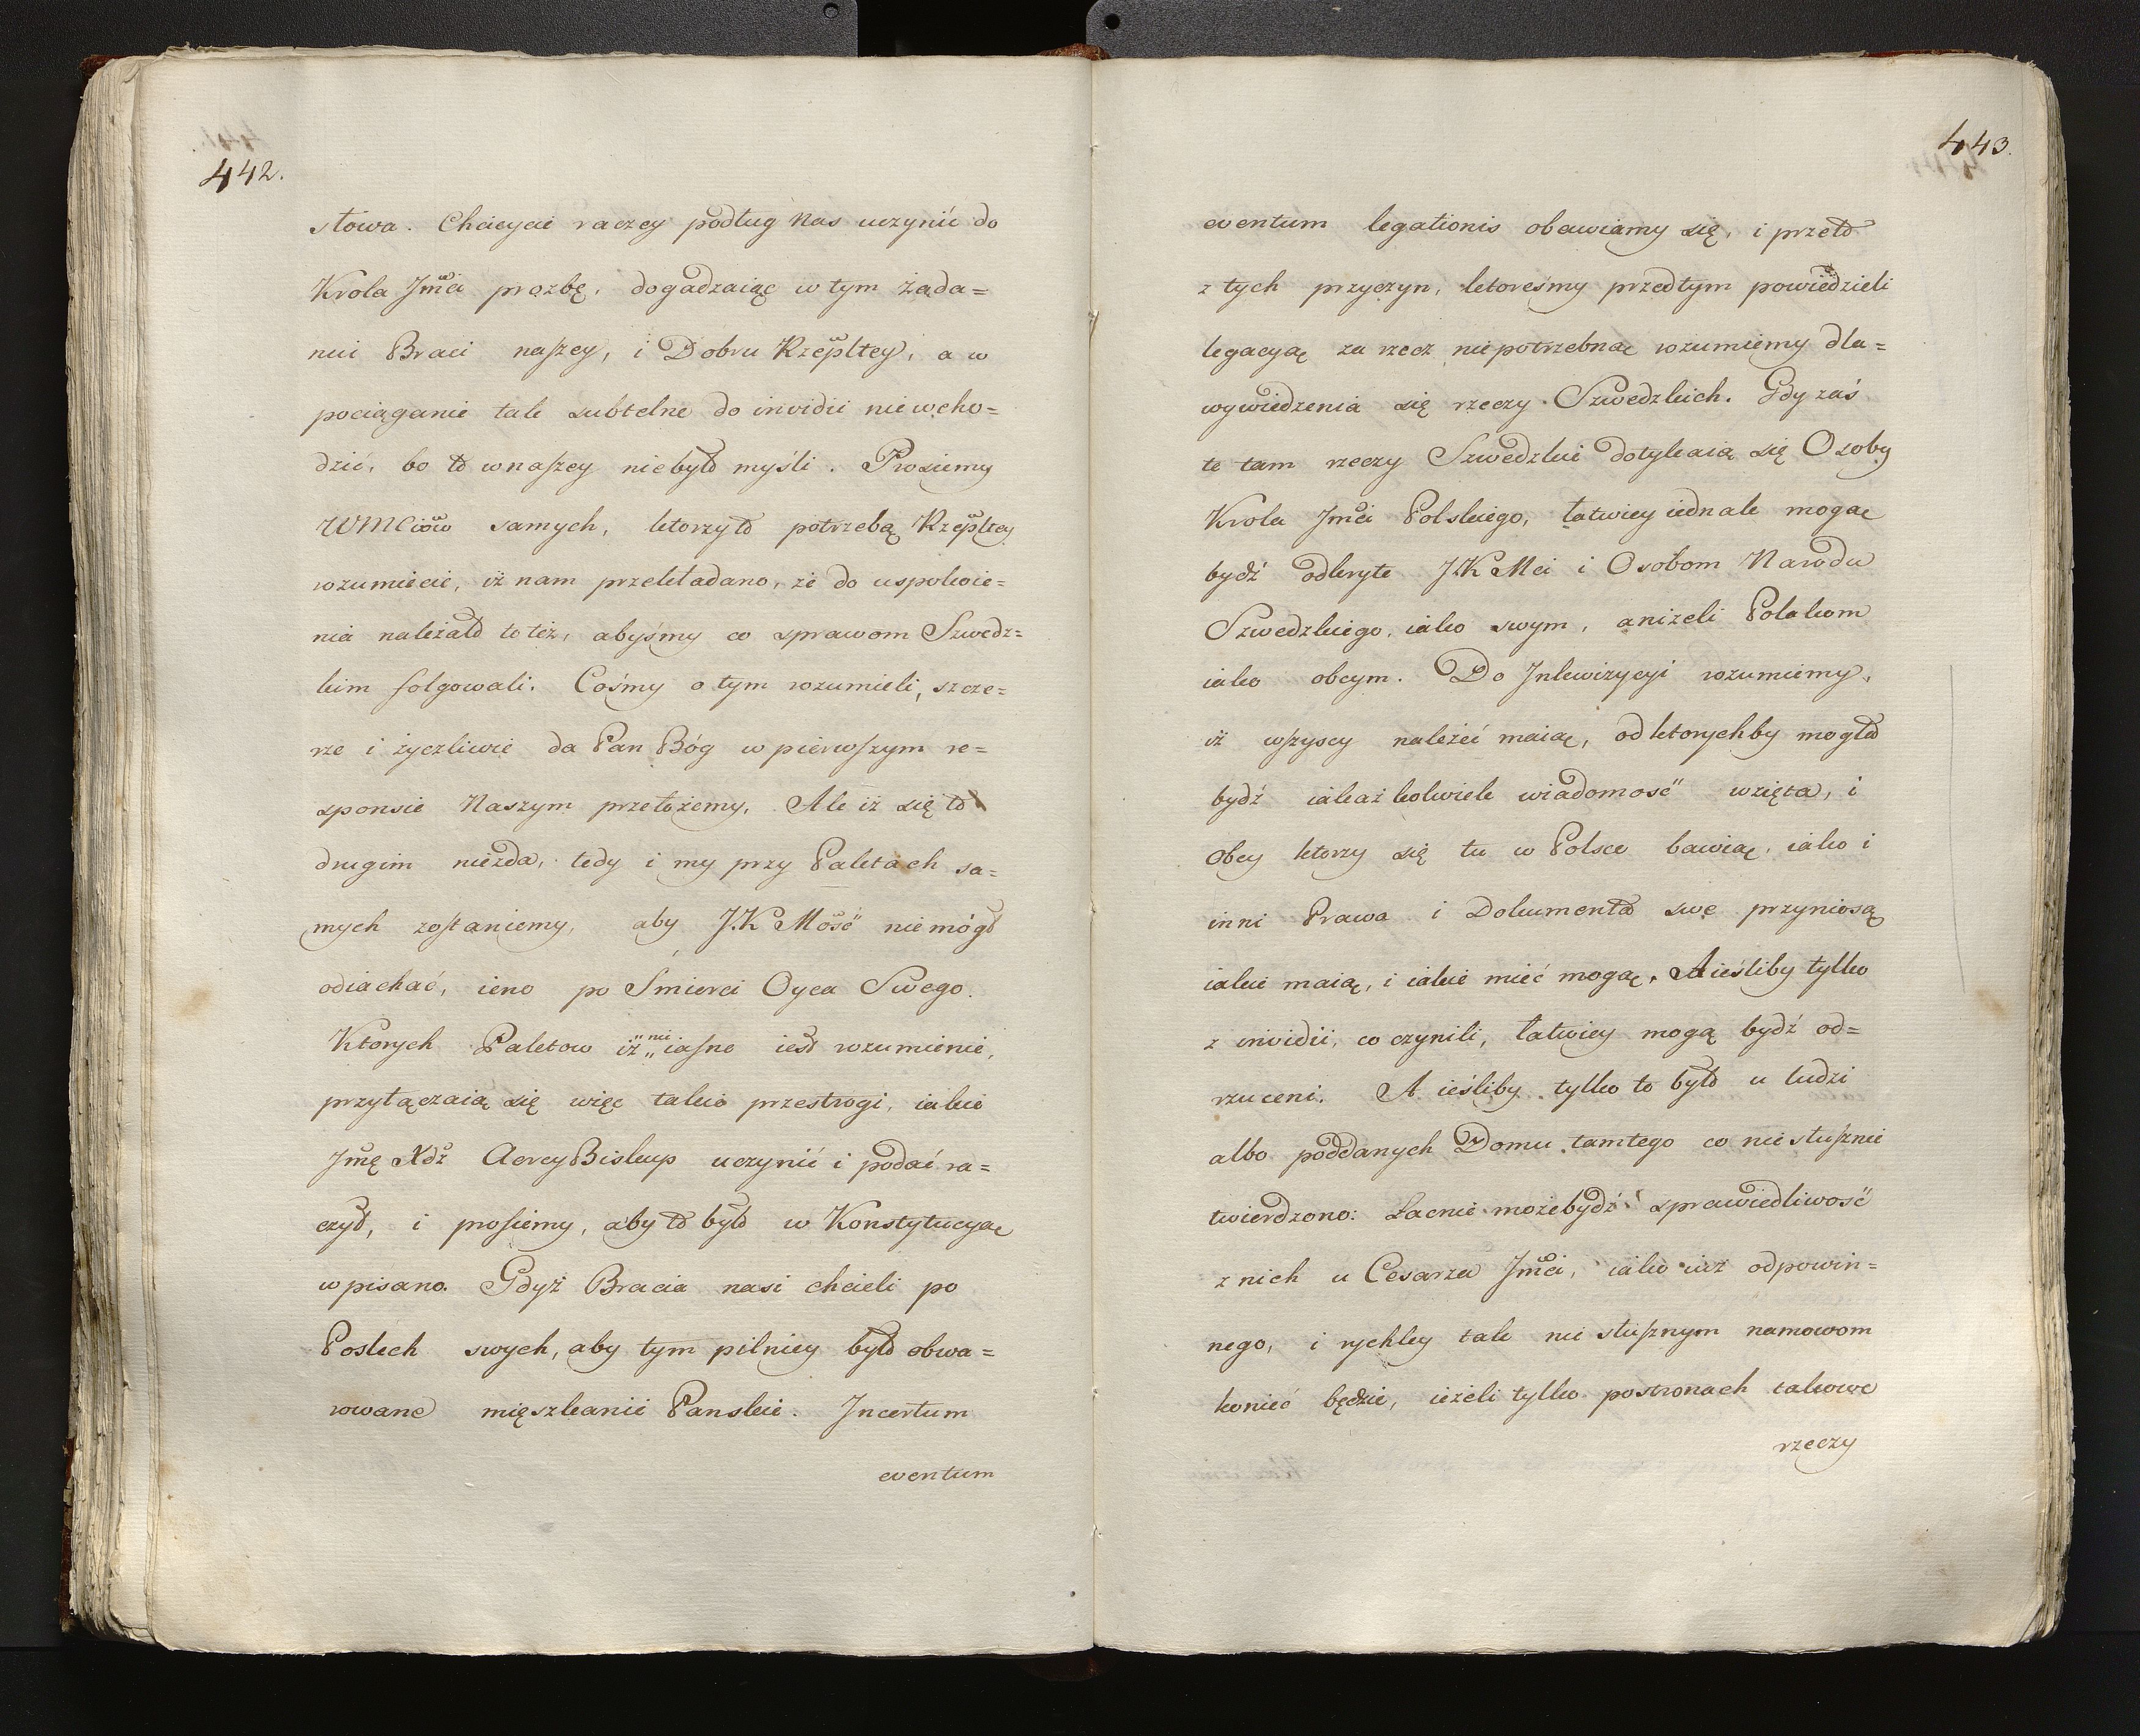 442.
słowa. Chcieycie raczey podług Nas uczynić do
Krola Jmci prozbę, dogadzaiąc w tym żąda=
niu Braci naszey, i Dobru Rzepltey, a w
pociąganie tak subtelne do invidii nie wcho=
dzić, bo to w naszey nie było myśli. Prosiemy
WMCiow samych, ktorzy to potrzebą Rzepltey
rozumiecie, iż nam przekładano, że do uspokoie=
nia należało to też, abyśmy co sprawom Szwedz=
kim folgowali. Cośmy o tym rozumieli, szcze=
rze i życzliwie da Pan Bóg w pierwszym re=
sponsie Naszym przełożemy, Ale iż się to
drugim niezda, tedy i my przy Paktach sa=
mych zostaniemy, aby J.K Mość nie mógł
odiachać, ieno po Śmierci Oyca Swego.
Ktorych Paktow iż nie iasne iest rozumienie,
przyłączaią się więc takie przestrogi, iakie
Jmę Xdz AercyBiskup uczynić i podać ra=
czył, i prosiemy, aby to było w Konstytucyą
wpisano. Gdyż Bracia nasi chcieli po
Poslech swych, aby tym pilniey było obwa=
rowane mięszkanie Panskie. Incertum
eventum
443.
eventum legationis obawiamy się, i przeto
z tych przyczyn, ktoreśmy przedtym powiedzieli
legacyą za rzecz niepotrzebną rozumiemy dla=
wywiedzenia się rzeczy Szwedzkich. Gdy zaś
te tam rzeczy Szwedzkie dotykaią się Osoby
Krola Jmci Polskiego, łatwiey iednak mogą
bydź odkryte J.K Mci i Osobom Narodu
Szwedzkiego, iako swym, aniżeli Polakom
iako obcym. Do Inkwizycyi rozumiemy,
iż wszyscy należeć maią, od ktorychby mogła
bydź iakaż kolwiek wiadomość wzięta, i
obcy ktorzy się tu w Polsce bawią, iako i
inni Prawa i Dokumenta swe przyniosą
iakie maią, i iakie mieć mogą. A ieśliby tylko
z invidii, co czynili, łatwiey mogą bydź od=
rzuceni. A ieśliby tylko to było u ludzi
albo poddanych Domu tamtego co nie słusznie
twierdzono: Łacnie może bydź sprawiedliwość
z nich u Cesarza Jmci, iako iuż odpowin=
nego, i rychley tak nie słusznym namowom
koniec będzie, ieżeli tylko po stronach takowe
rzeczy